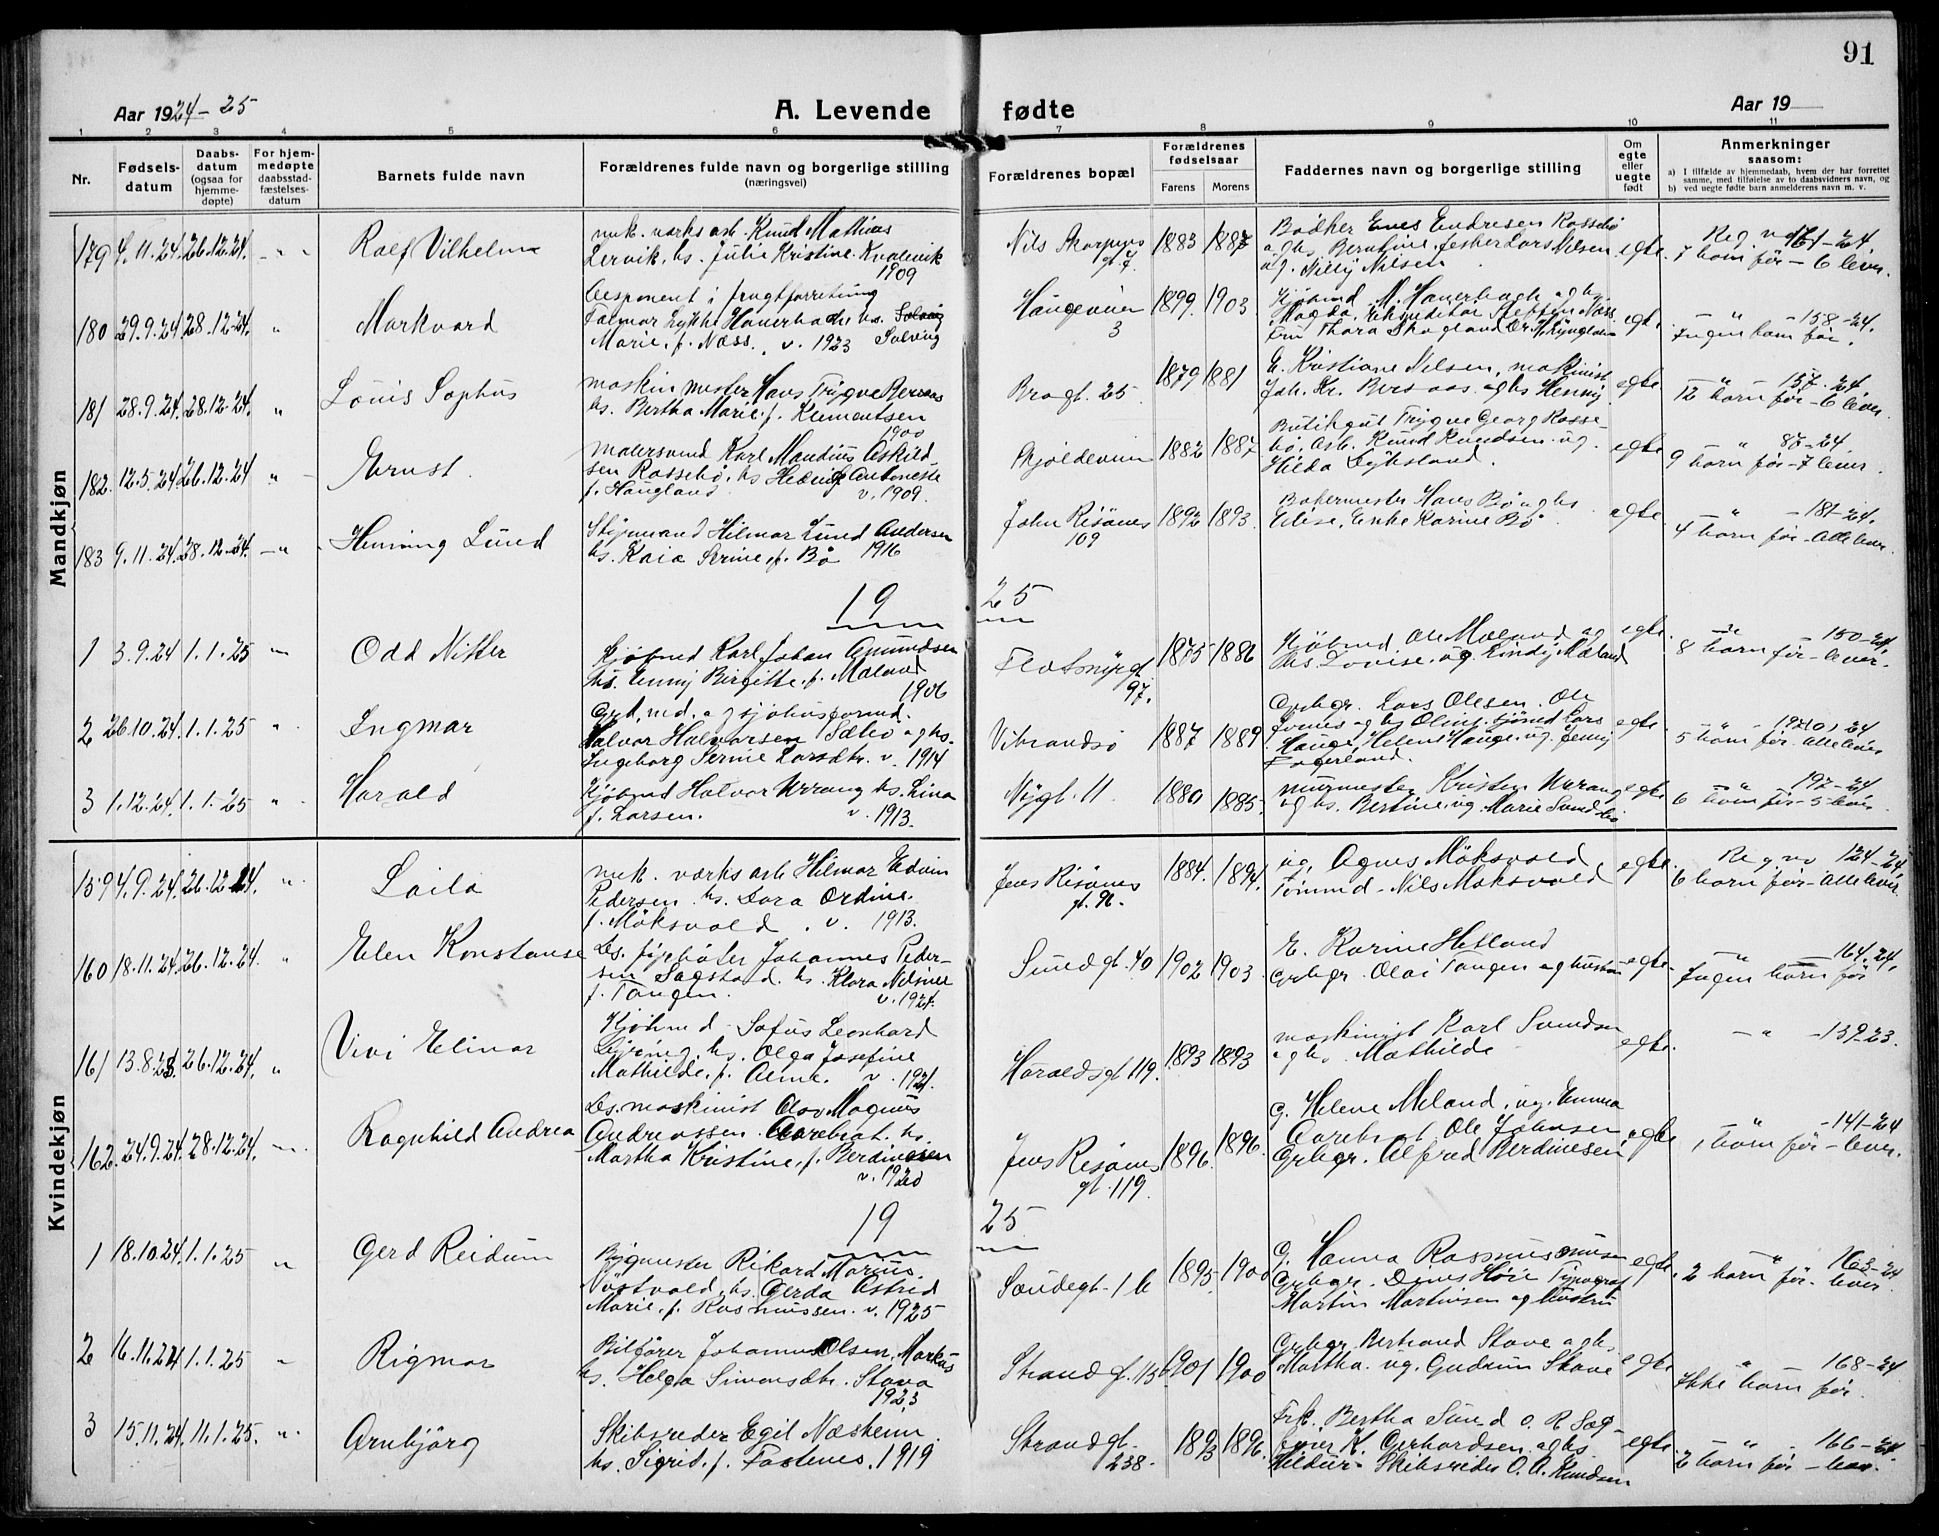 91
Aar 1924-25
A. Levende fødte
Aar 19
1 2 3 4 5 6 7 8 9 10 11
Nr.
Fødsels-
datum
Daabs-
datum
(ogsaa for
hjemme-
døpte)
For hjem-
medøpte
daabsstad-
fæstelses-
datum
Barnets fulde navn
Forældrenes fulde navn og borgerlige stilling
(næringsvei)
Forældrenes bopæl
Forældrenes
fødselsaar
Farens Morens
Faddernes navn og borgerlige stilling
Om
egte
eller
uegte
født
Anmerkninger
saasom:
a) I tilfælde av hjemmedaab, hvem der har forrettet
samme, med tilføielse av to daabsvidners navn, og
b) ved uegte fødte barn anmelderens navn m. v.
Mandkjøn
179 4.11.24 26.12.24 Rolf Vilhelm
mek. verks arb. Knud Mathias
Lervik, hs. Julie Kristine Kvalevik
1909
Nils Skorpens gt. 7 1883 1887
Bødker Enes Endresen Rossebø
og hs Berntine, fisker Lars Nilsen
ug. Nilly Nilsen
egte. Reg. no 161-24.
7 barn før - 6 lever.
180 29.9.24 28.12.24 Markvard
Disponent i frugtforretning
Falmar Lykke Hauerbach hs. Solveig
Marie, f. Næss. v. 1923 Solveig
Haugeveien 3 1899 1903
Kjøbmd. M. Hauerbach og hs
Magda, Ekspeditør Steffen Næss
Fru Thora Skogland
egte. " - 158-24.
Ingen barn før.
181 28.9.24 28.12.24 Louis Sophus
maskinmester Hans Trygve Bersaas
hs. Bertha Marie, f. Klementsen
1900
Brogt. 25 1879 1881
E. Kristiane Nilsen, maskinist
Joh. Kr. Bersaas og hs Henny
egte " 157-24
12 barn før - 6 lever.
182 12.5.24 26.12.24 Ernst
malersvend Karl Mandius Askild
sen Rossebø, hs Helene Antonette
f. Haugland v. 1909.
Skjoldeveien 1882 1887
Butikgut Trygve Georg Rosse
bø, Arb. Knud Knudsen. ug.
Hilda Lyksland.
egte " 87-24.
9 barn før - 7 lever.
183 9.11.24 28.12.24 Henning Lund
Styrmand Hilmar Lund Andersen
hs. Kaia Serine, f. Bø 1916
John Risøens 109 1892 1893
Bakermester Hans Bø og hs
Elise, Enke Karine Bø
egte " - 181-24.
4 barn før - alle lever.
19 25
1 3.9.24 1.1.25 Odd Nitter
Kjøbmd Karl Johan Amundsen
hs. Jenny Birgitte, f. Mæland
1906
Flotmyrgt. 97. 1875 1886
Kjøbmd. Ole Mæland og
hs. Lovise, ug. Lindy Mæland
egte. " - 150-24.
8 barn før - lever.
2 26.10.24 1.1.25 Ingmar
Grd. md. og sjøhusformd.
Halvor Halvorsen Sæbø og hs.
Ingeborg Serine Larsdtr. v. 1914
Vibrandsø 1887 1889
Grbgr. Lars Olesen. Ole
Hauge, Helene Hauge, ug. Jenny
Fagerland.
egte.
5 barn før - alle lever
3 1.12.24 1.1.25 Harald
Kjøbmd Halvor Wrang hs. Lina
f. Larsen. v. 1913.
Nygt. 11 1880 1885
murmester Kristen Wrang
og hs. Bertine, ug. Marie Sundsbø
egte " - 197-24
6 barn før - 5 lever
Kvindekjøn
159 4.9.24 26.12.24. Laila
mek. verks arb Hilmar Edvin
Pedersen hs. Dora Ordine.
f. Møksvold. v. 1913.
Jens Risøens gt. 96. 1884. 1894.
ug. Agnes Møksvold
Tømmd - Nils Møksvold
egte. Reg no 124-24.
6 barn før - alle lever.
160 18.11.24 26.12.24. Elen Konstanse
Ds. fyrbøter Johannes Peder-
sen Sagstad. hs. Klara Nelsine
f. Tangen. v. 1924.
Sundgt. 40 1902 1903.
E. Karine Hetland
Grbgr. Olai Tangen og hustru
egte. " 164.24.
Ingen barn før
161 13.8.23. 26.12.24. Vivi Elinor
Kjøbmd. Sofus Leonhard
hs. Olga Josefine
Mathilde, f. v. 1921.
Haraldsgt. 119. 1893 1893
maskinist Karl Svendsen
og hs. Mathilde
egte. " - 139-23.
162. 24.9.24. 28.12.24. Ragnhild Andrea
Ds. maskinist Olav Magnus
Andreassen Aarebrot. hs.
Martha Kristine, f. Berdinesen
v. 1920
Jens Risøens gt. 119. 1896. 1896.
G. Helene Meland, ug. Emma
Aarebrot, Ole Johnsen,
Grbgr. Alfred Berdinesen
egte " - 141-24
1 barn før - lever.
19 25
1 18.10.24 1.1.25 Gerd Reidun
Bygmester Rikard Marius
Nøstvold, hs. Gerda Astrid
Marie, f. Rasmussen. v. 1925
Søndregt. 1 b 1895. 1900
G. Hanna Rasmussen
Grbgr. Denis Høie Typograf
Martin Martinsen og hustru
egte. 163-24
2 barn før - lever.
2 16.11.24 1.1.25 Rigmor
Bilfører Johannes Olsen Markus
hs. Helga Simonsdtr. Stava
1923
Strandgt. 156 1901 1900
Grbgr. Bertrand Stave og hs.
Martha. ug. Gudrun Stave
egte. " 168-24
Ikke barn før.
3 15.11.24 11.1.25. Arnbjørg
Skibsreder Egil Næsheim.
hs. Sigrid. f. Fastenes. 1919
Strandgt. 238. 1893 1896.
Frk. Bertha Sund o. R. Sag-
fører K. Gerhardsen og hs
Hildur - Skibsreder O. A. Knudsen
egte. " - 166-24
2 barn før - lever.